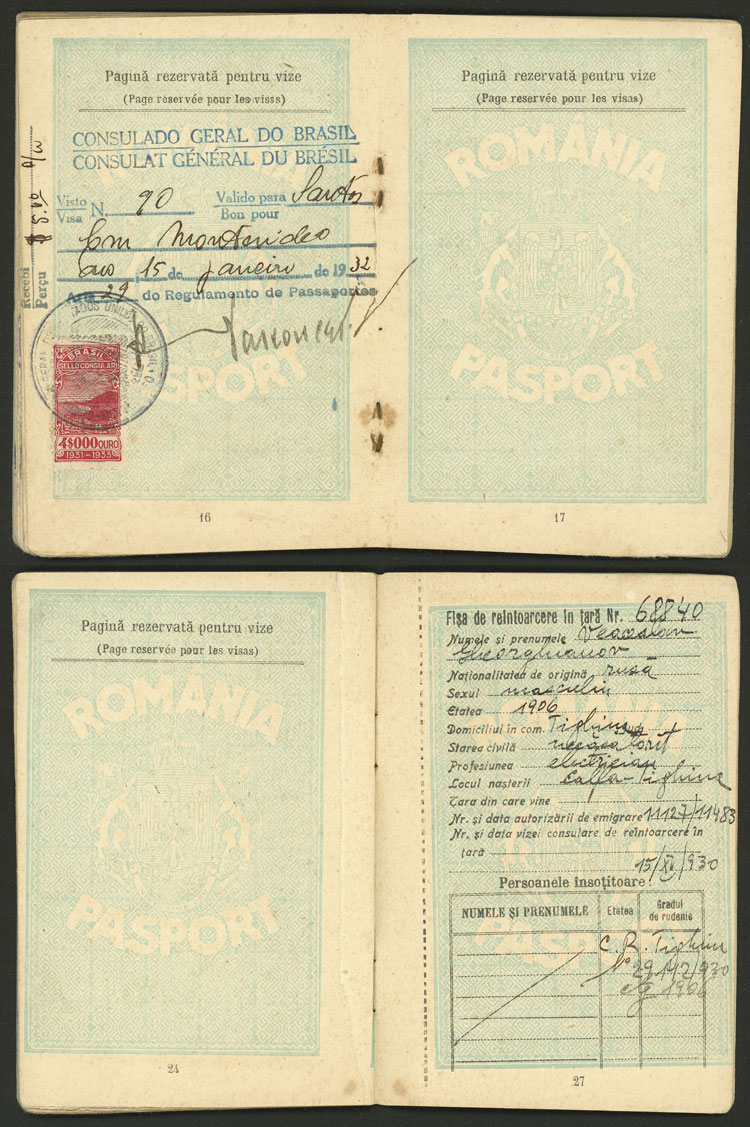 Pagină rezervată pentru vize
(Page reservée pour les visas)
CONSULADO GERAL DO BRASIL
CONSULAT GÉNÉRAL DU BRÉSIL
Recebi
Perçu
Visto
Visa
N. 90
Valido para Santos
Bon pour
Em Montevideo
aos 15 de Janeiro de 1932
29 do Regulamento de Passaportes
BRASIL
SELLO CONSULAR
4$000 OURO
1931-1933
ROMÂNIA
PASPORT
16
Pagină rezervată pentru vize
(Page reservée pour les visas)
ROMÂNIA
PASPORT
17
Pagină rezervată pentru vize
(Page reservée pour les visas)
ROMÂNIA
PASPORT
24
Fișa de reintoarcere în țară Nr. 68840
Numele și prenumele
Gheorghianov
Naționalitatea de origină rusă
Sexul masculin
Etatea 1906
Domiciliul în com. Tighina
Starea civilă
Profesiunea electrician
Locul nașterii Calfa-Tighina
Țara din care vine
Nr. și data autorizării de emigrare 11127/11483
Nr. și data vizei consulare de reîntoarcere în
țară
15/XII/930
Persoanele însoțitoare:
NUMELE ȘI PRENUMELE
Etatea
Gradul
de rudenie
C. R. Tighina
1906
PASPORT
27